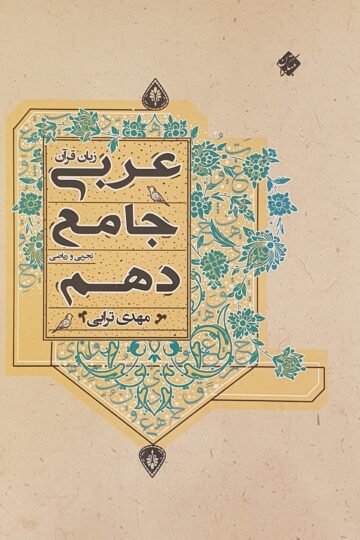 عربی
زبان قرآن
جامع
تجربی و ریاضی
دهم
مهدی ترابی